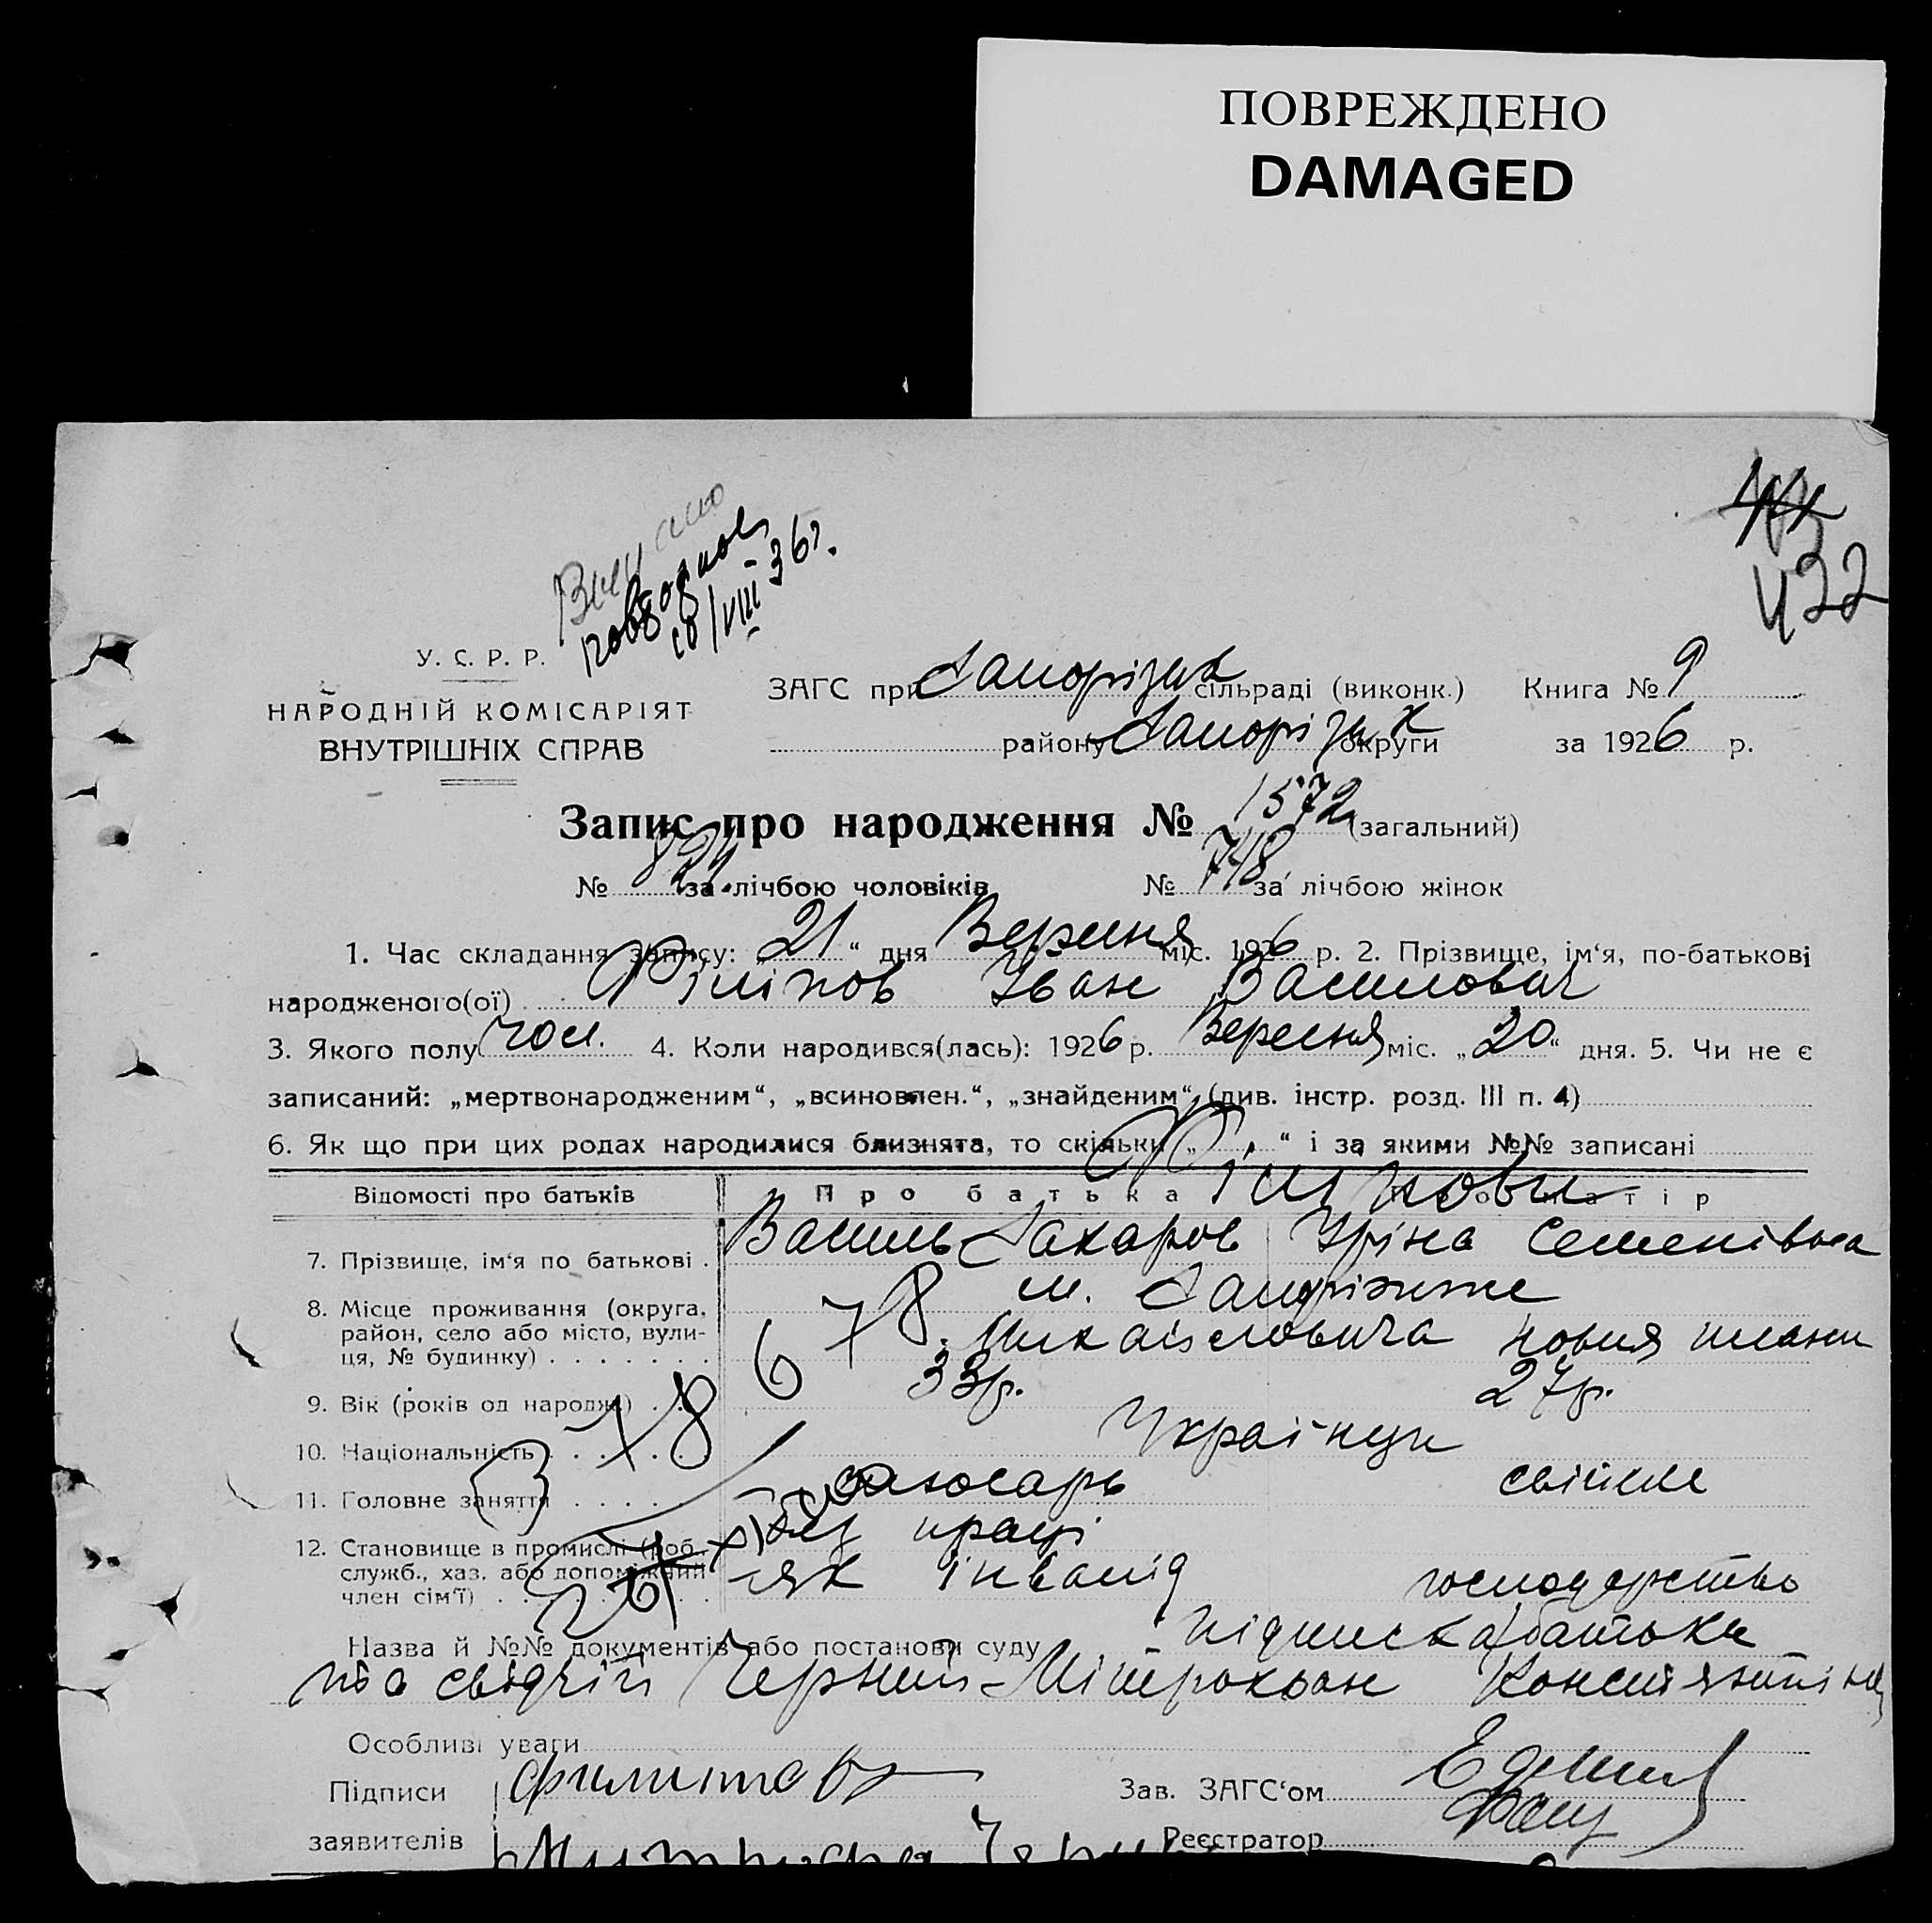 ПОВРЕЖДЕНО
DAMAGED
432
/VIII 36 г.
У. С. Р. Р.
НАРОДНІЙ КОМІСАРІЯТ
ВНУТРІШНІХ СПРАВ
ЗАГС при Запорізьк сільраді (виконк.) Книга № 9
району Запорізьк округи за 1926 р.
Запис про народження № 1572 (загальний)
№ 824 за лічбою чоловіків № 748 за лічбою жінок
1. Час складання запису: „21“ дня Вересня міс. 1926 р. 2. Прізвище, ім‘я, по-батькові
народженого(ої) Філіпов Іван Васильович
3. Якого полу чол. 4. Коли народився(лась): 1926 р. Вересня міс. „20“ дня. 5. Чи не є
записаний: „мертвонародженим“, „всиновлен.“, „знайденим“, (див. інстр. розд. III п. 4)
6. Як що при цих родах народилися близнята, то скільки „ “ і за якими №№ записані
Відомості про батьків Про батька Про матір
Філіпови
7. Прізвище, ім‘я по батькові . Василь Захаров Іріна Семенівна
8. Місце проживання (округа, район, село або місто, вулиця, № будинку) . . . . . . . м. Запоріжже
678 Михаіловича новия плани
9. Вік (років од народж.) . . 33 р. 27 р.
10. Національність . . . . . . Українци
11. Головне заняття . . . . . слюсарь
без праці
12. Становище в промислі (роб., служб., хаз. або допоміжний член сім‘ї) . . . як інвалід господарство
Назва й №№ документів або постанови суду підписка батьки
та свідчій Черний Мітрохван
Особливі уваги
Підписи Филипов Зав. ЗАГС‘ом
заявителів Реєстратор